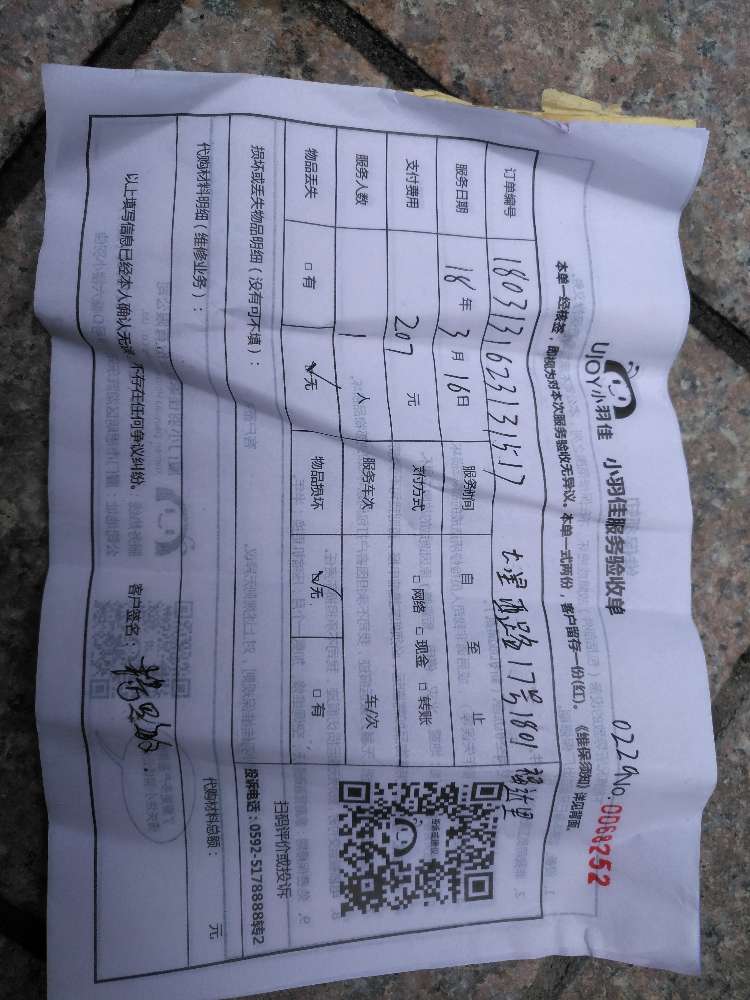 UJOY小羽佳 小羽佳服务验收单 0229 No.0068252
本单一经核签，即视为对本次服务验收无异议。本单一式两份，客户留存一份(红)。《维保须知》详见背面。
订单编号 1803131623131517 17号1801
服务日期 18年3月16日 服务时间 自 至 止
支付费用 207元 支付方式 □网络 □现金 □转账
服务人数 1人 服务车次 车/次
物品丢失 □有 ☑无 物品损坏 ☑无 □有
损坏或丢失物品明细（没有可不填）：
扫码评价或投诉
投诉电话：0592-5178888转2
代购材料明细（维修业务）： 代购材料总额： 元
以上填写信息已经本人确认无误，不存在任何争议纠纷。 客户签名：